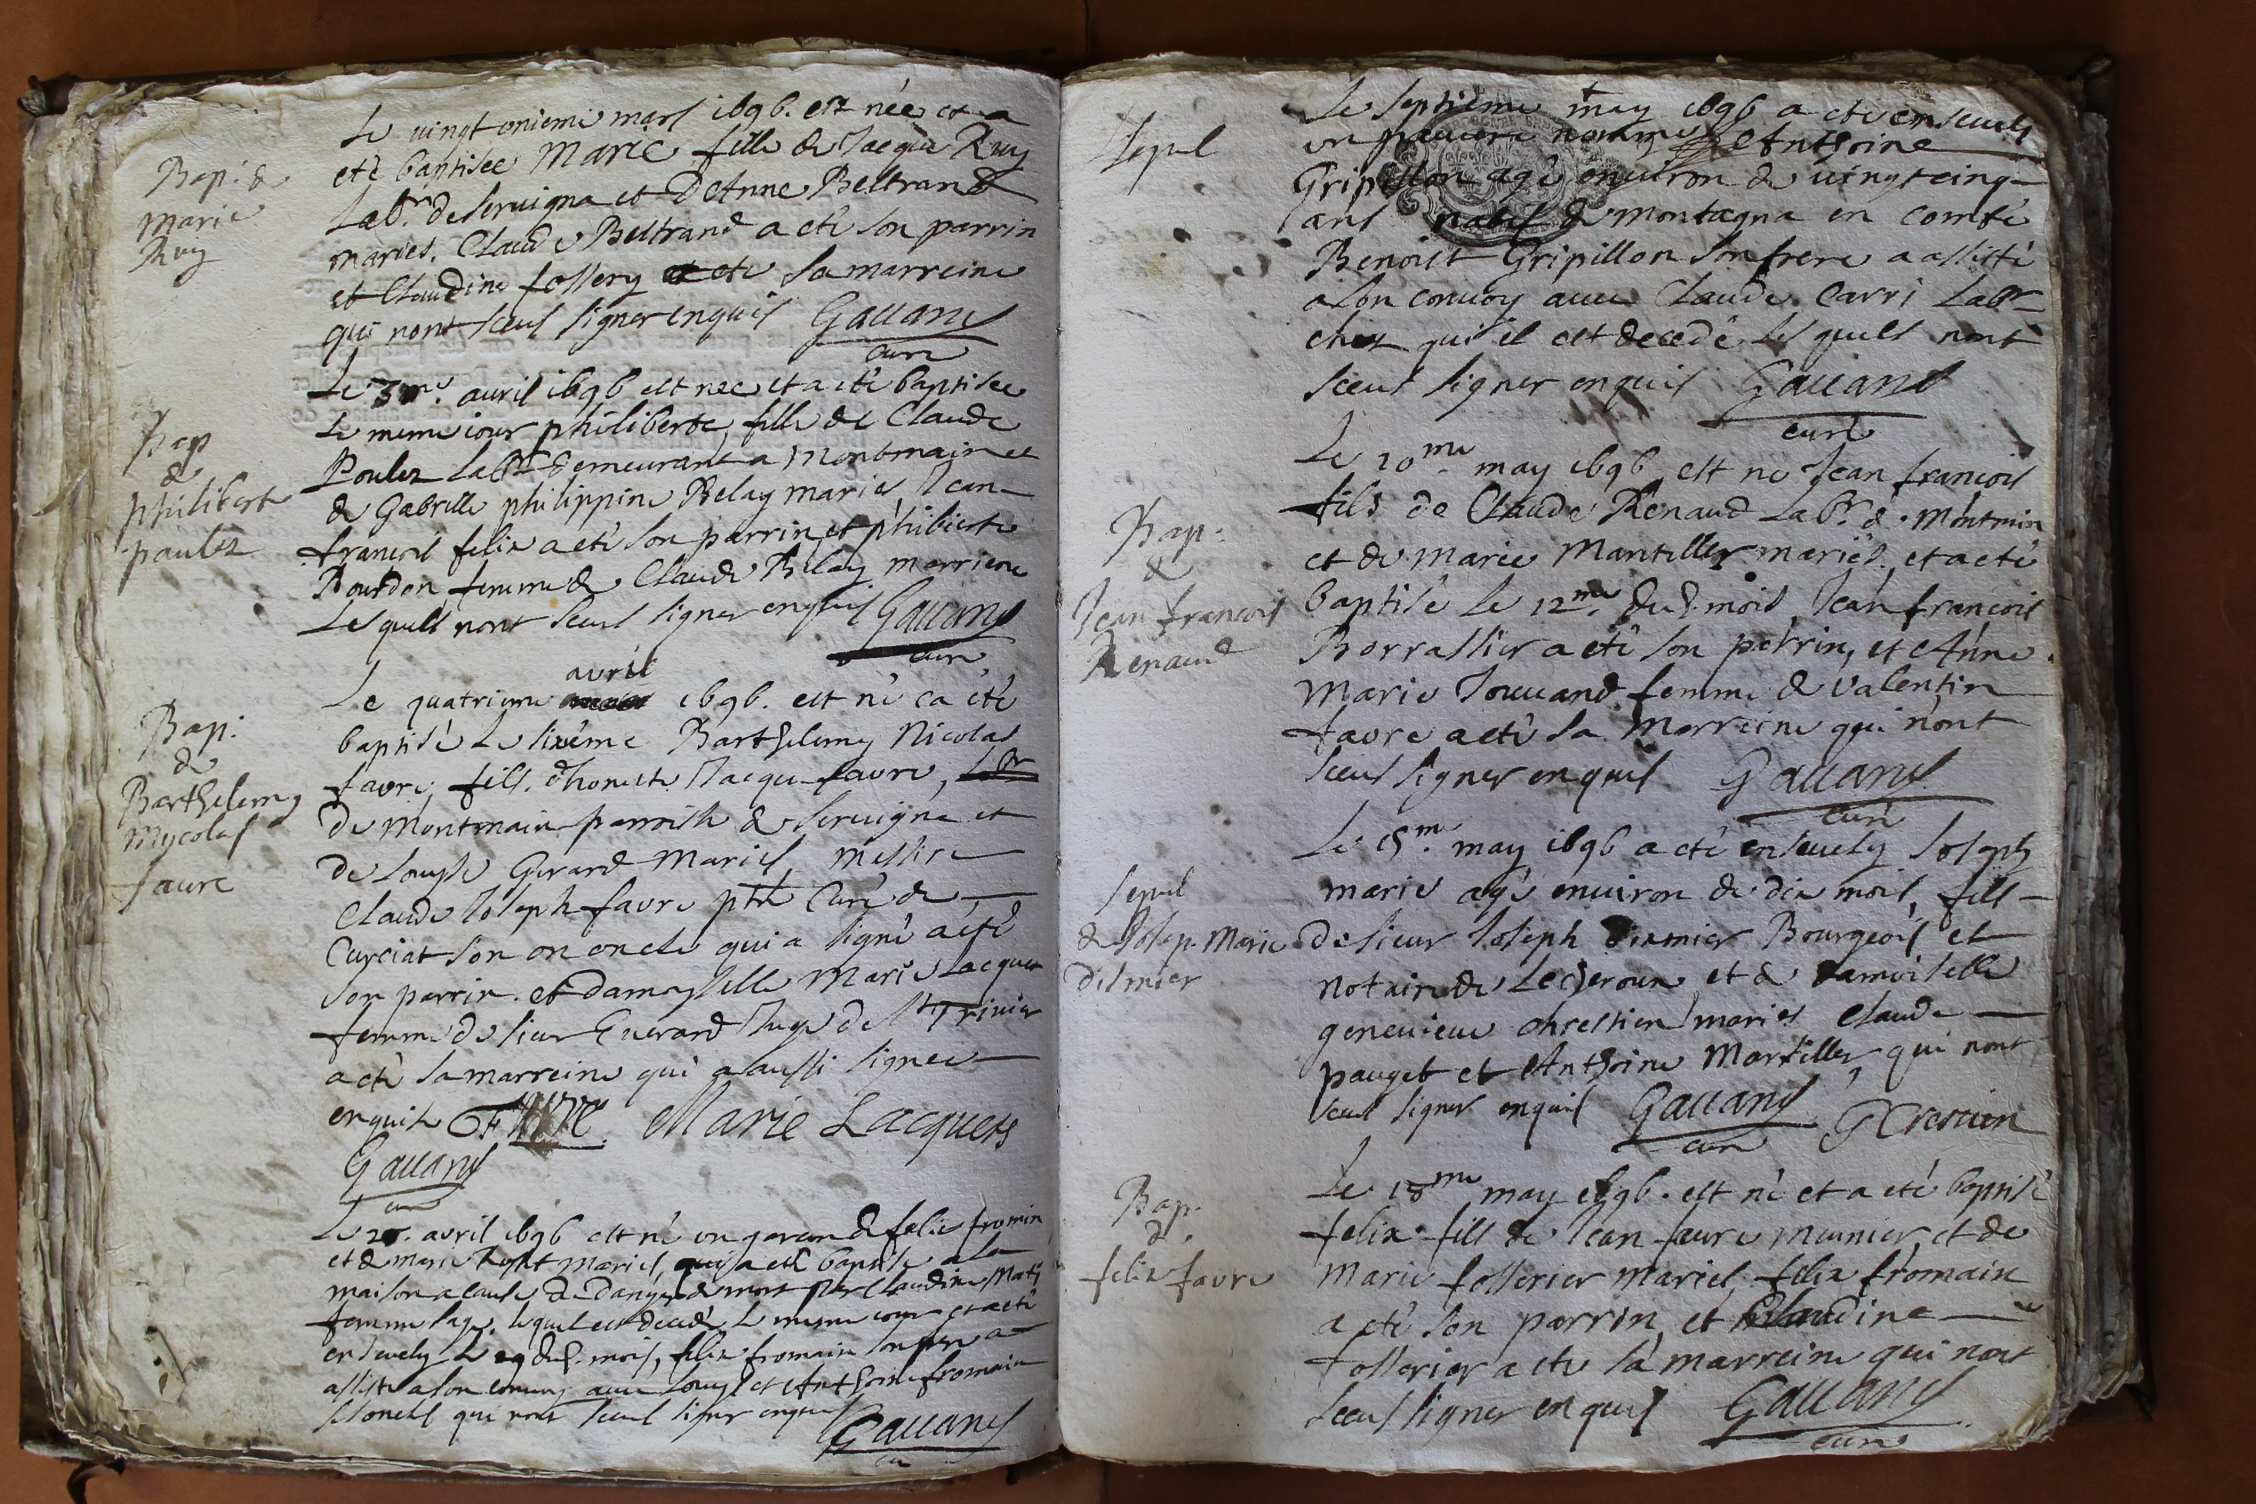 Bap. &
Marie
Ruy
Le vingt onieme mars 1696. est née et a
eté baptisee Marie fille de Jaque Ruy
Labr. de Servigna et d'Anne Beltrand
mariés. Claude Beltrand a eté son parrin
et Claudine fossery a eté sa marreine
qui nont sceus signer enquis Gauand
curé
Bap
&
philiberte
paulez
Le 3me. avril 1696 est nee et a eté baptisee
Le meme iour philiberte, fille de Claude
Poulez Labr. demeurant a Montmain et
de Gabrille philippine Belay mariés, Jean
francois felix a eté son parrin et philiberte
Bourdon femme de Claude Belay marriene
Lesquels nont sceus signer enquis Gauand
curé
Bap.
de
Barthelemy
Nycolas
favre
avril
Le quatrieme 1696. est né ea été
baptisé Le sixéme Barthelemy Nicolas
favre, fils d'honeste Jacque favre,
de Montmain parroisse de Servigna et
de Louyse Girard Mariés, messire
Claude Joseph favre ptre Curé de
Curciat son on oncle qui a signé a été
son parrin. et damoyselle Marie Lacquers
femme de sieur Guerard Juge de St Trivier
a eté sa marreine qui a aussi signee
enquise Favre. Marie Lacquers
Gauand
curé
avril 1696 est né un garcon de felix fromin
et de marie mariés, qui a eté baptisé a la
maison a cause de danger de mort par Claudine
femme sage. lequel est decedé le mesme iour et a eté
ensevely le dud. mois, felix fromain son pere a
assisté a son convoy avec Louys et Anthoine fromain
ses oncles qui nont sceus signer enquis
Gauand
cu
Sepul
Le septieme may 1696 a eté ensevely
un pauvre nommé Anthoine
Gripillon agé environ de vingt cinq
ans natif de montagna en comté
Benoist Gripillon son frere a assisté
a son convoy avec Claude Carri Labr
chez qui il est decedé Lesquels nont
sceus signer enquis Gauand
curé
Bap.
de
Jean francois
Renaud
Le 10me may 1696 est né Jean francois
fils de Claude Renaud Labr. de Montmin
et de Marie Mantiller mariés, et a eté
baptisé Le 12me. dud. mois Jean francois
Borrassier a eté son parrin, et Anne
Marie Jouuand femme de valentin
favre a eté sa Marreine qui n'ont
sceus signer enquis Gauand
curé
Sepul
de Josep. Marie
Dismier
Le 15m. may 1696 a eté ensevely Joseph
marie agé environ de dix mois, fils
de sieur Joseph Dismier Bourgeois et
notaire de et de Damoiselle
genevieve chrestien mariés Claude
pauget et Anthoine Mantiller, qui nont
sceus signer enquis Gauand
curé G Crestien
Bap.
de
felix favre
Le 18me may 1696. est né et a eté baptisé
felix fils de Jean favre meunier et de
Marie fosserier mariés, felix fromain
a eté son parrin et Claudine
fosserier a eté sa marreine qui nont
sceus signer enquis Gauand
curé